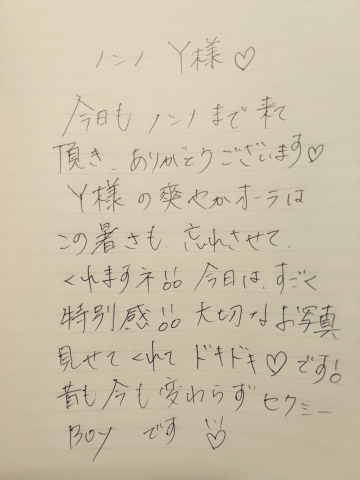 ノンノ Y様♡
今日も ノンノ まで 来て
頂き、ありがとうございます♡
Y様 の 爽やかオーラは
この暑さも、忘れさせて、
くれますネ!! 今日は、すごく
特別感!! 大切なお写真
見せて くれて ドキドキ♡です!
昔も 今も 変わらず セクシー
BOY です ♡